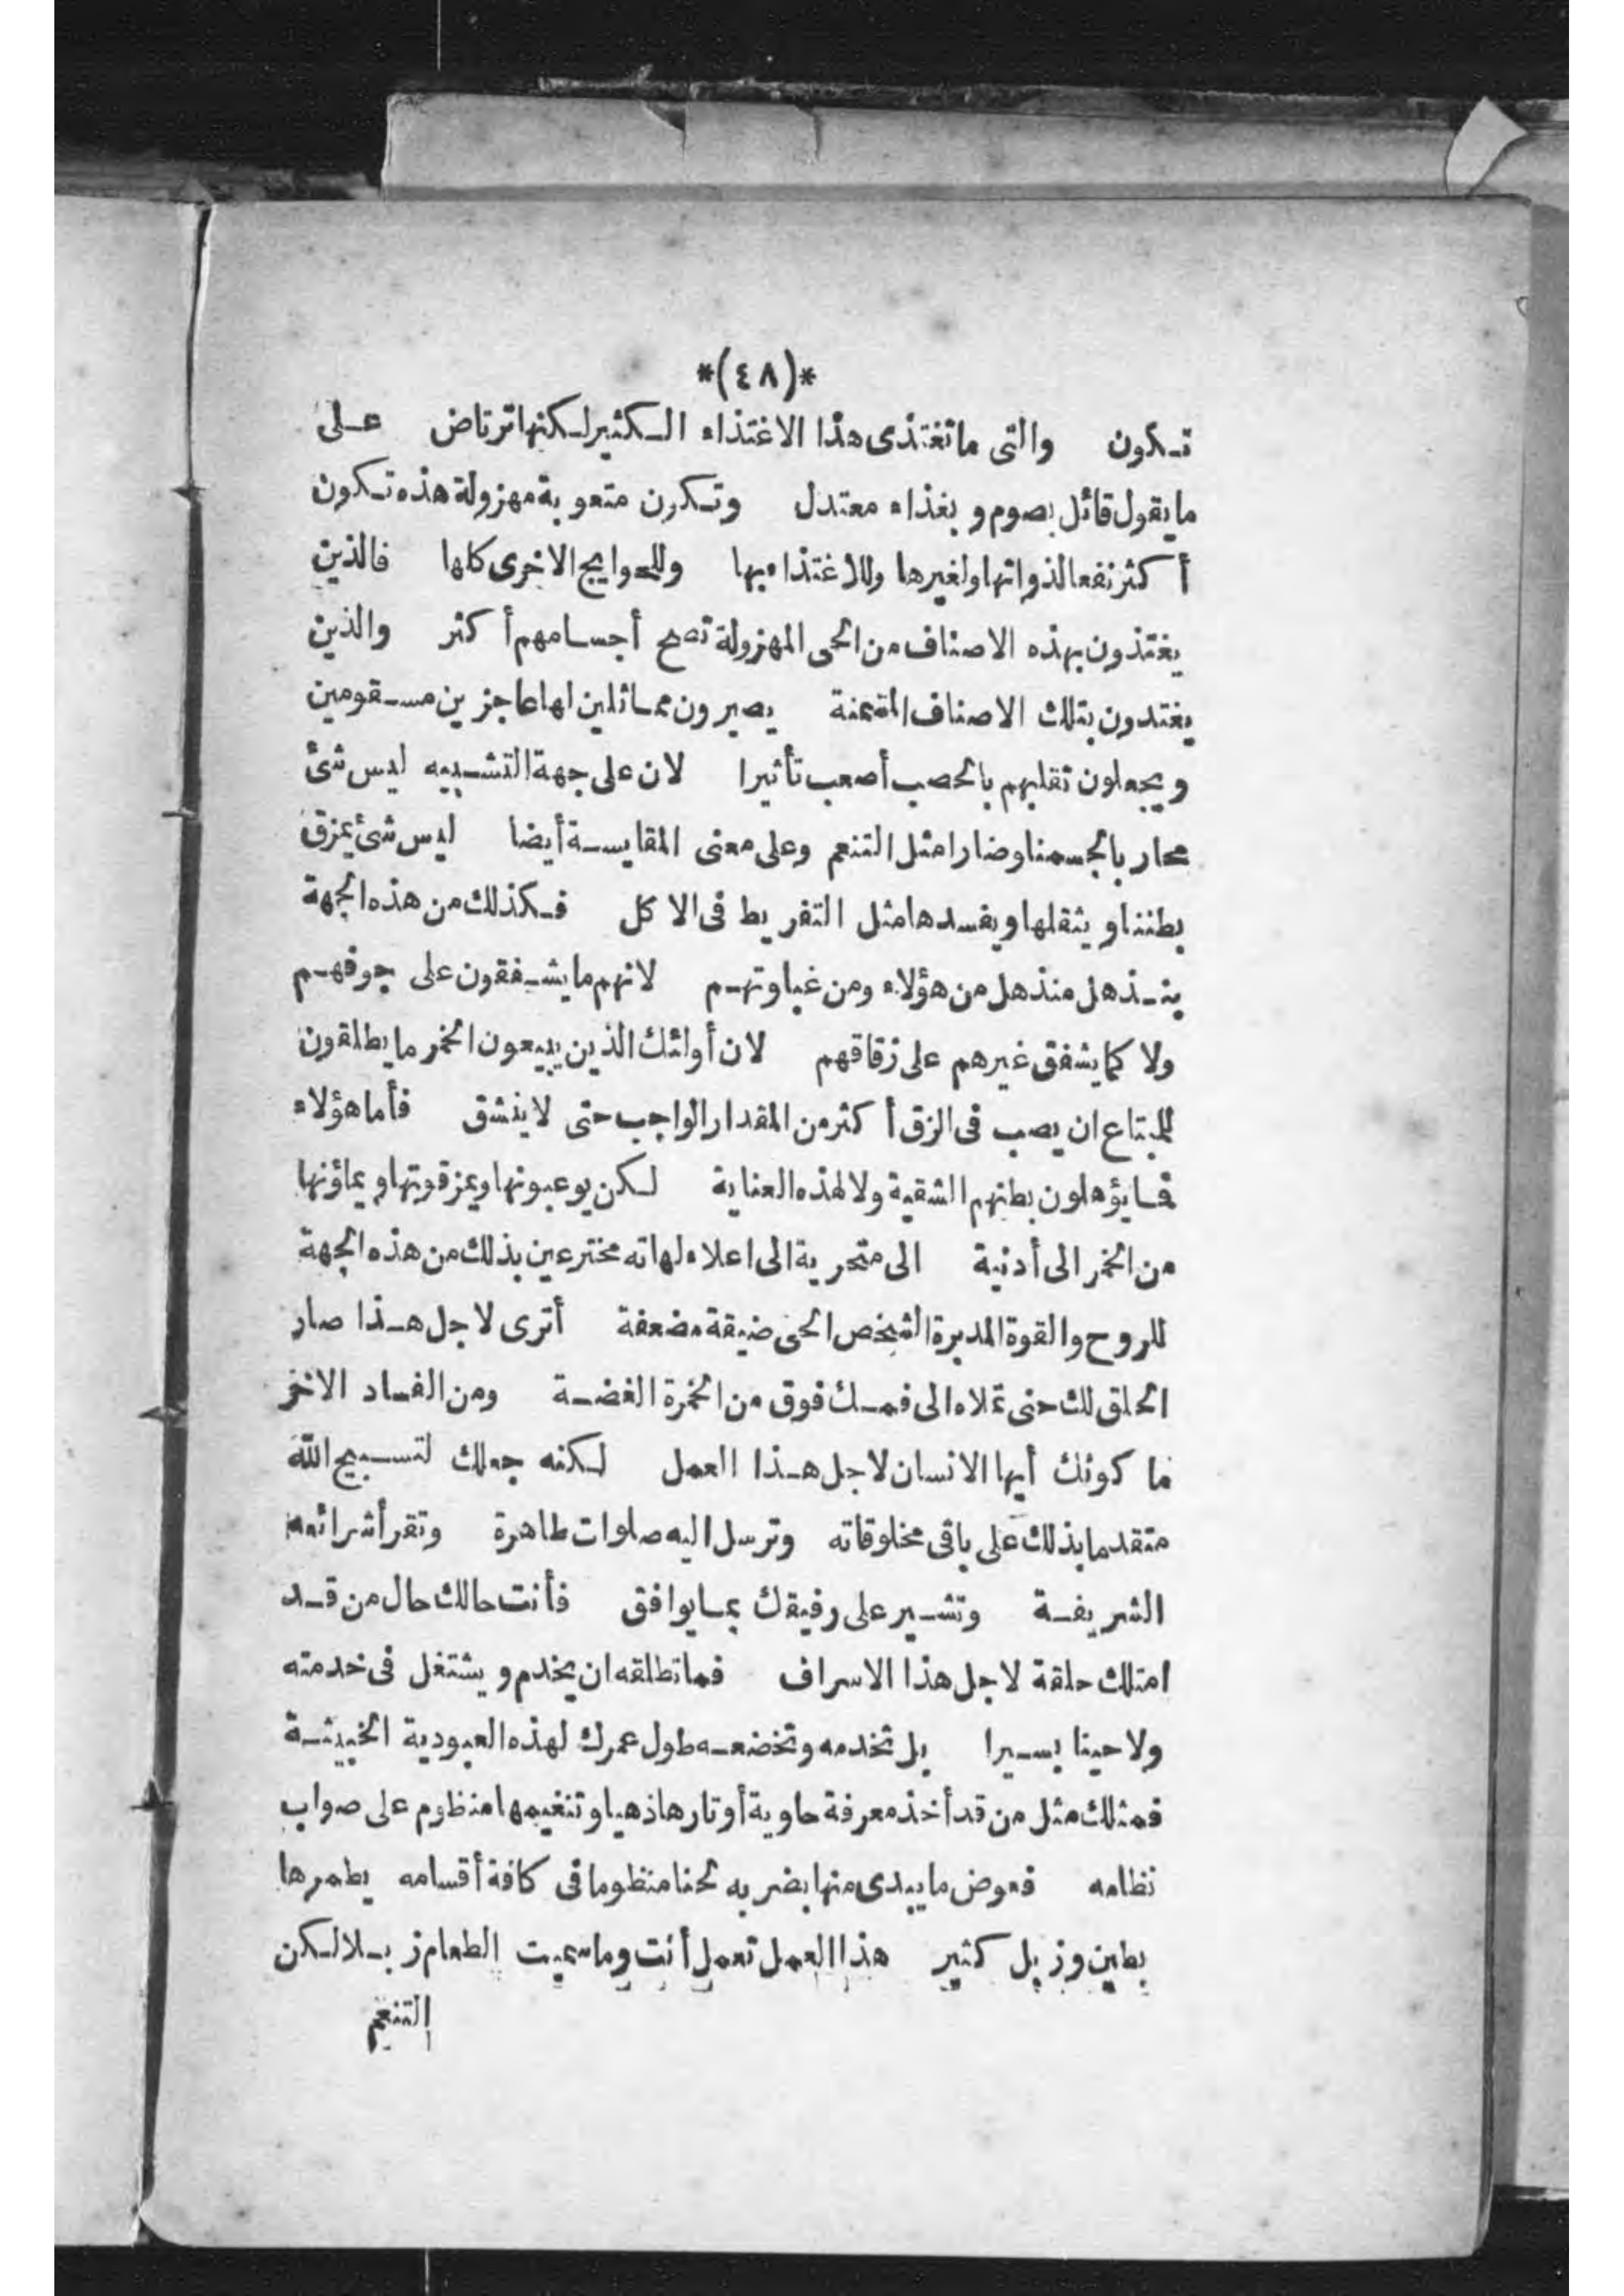 *(٤٨)*
تكون والتى ما تغتذى هذا الاغتذاء الكثير لكنها ترتاض على
ما يقول قائل بصوم و بغذاء معتدل وتكون متعوبة مهزولة هذه تكون
أكثر نفعا لذواتها ولغيرها وللاغتذاء بها وللحوايج الاخرى كلها فالذين
يغتذون بهذه الاصناف من الحى المهزولة تصح أجسامهم أكثر والذين
يغتدون بتلك الاصناف المسمنة يصيرون مماثلين لها عاجزين مسقومين
ويجعلون تقلبهم بالحصب أصعب تأثيرا لان على جهة التشبيه ليس شئ
محاربا لجسمنا وضارا مثل التنعم وعلى معنى المقايسة أيضا ليس شئ يمزق
بطننا ويثقلها ويفسدها مثل التفريط فى الاكل فكذلك من هذه الجهة
ينذهل منذهل من هؤلاء ومن غباوتهم لانهم ما يشفقون على جوفهم
ولا كما يشفق غيرهم على زقاقهم لان أولئك الذين يبيعون الخمر ما يطلقون
للمبتاع ان يصب فى الزق أكثر من المقدار الواجب حتى لا ينشق فأما هؤلاء
فما يؤهلون بطنهم الشقية ولا لهذه العناية لكن يوعبونها ويمزقونها ويملؤنها
من الخمر الى أدنية الى متحرية الى اعلاء لهاته مخترعين بذلك من هذه الجهة
للروح والقوة المدبرة الشخص الحى ضيقة مضعفة أترى لاجل هذا صار
الحلق لك حتى تملاه الى فمك فوق من الخمرة الغضة ومن الفساد الاخر
ما كونك أيها الانسان لاجل هذا العمل لكنه جعلك لتسبيح الله
متقدما بذلك على باقى مخلوقاته وترسل اليه صلوات طاهرة وتقرأ شرائعه
الشريفة وتشير على رفيقك بما يوافق فأنت حالك حال من قد
امتلك حلقة لاجل هذا الاسراف فما تطلقه ان يخدم و يشتغل فى خدمته
ولا حينا يسيرا بل تخدمه وتخضعه طول عمرك لهذه العبودية الخبيثة
فمثلك مثل من قد أخذ معرفة حاوية أوتارها ذهبا وتنغيمها منظوم على صواب
نظامه فعوض ما يبدى منها بضربه لحنا منظوما فى كافة أقسامه يطمرها
بطين وزبل كثير هذا العمل تعمل أنت وما سميت الطعام زبلا لكن
التنعم